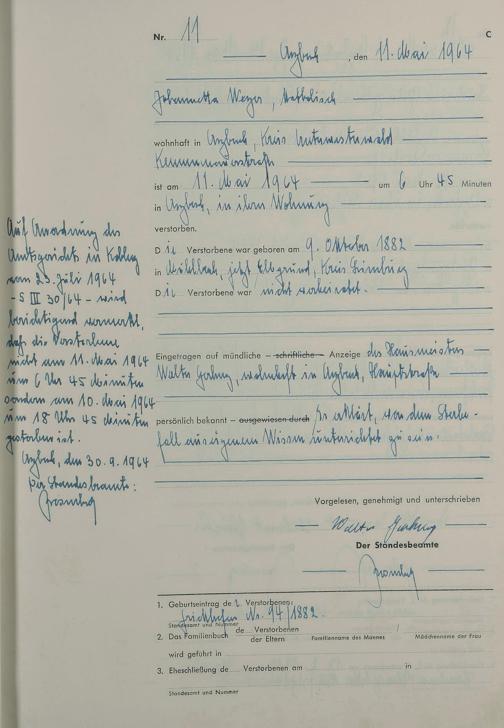 Nr. 11
C
Arzbach, den 11. Mai 1964
Johannetta Weyer, katholisch
wohnhaft in Arzbach, Kreis Unterwesterwald
ist am 11. Mai 1964 um 6 Uhr 45 Minuten
in Arzbach, in ihrer Wohnung
verstorben.
Die Verstorbene war geboren am 9. Oktober 1882
in Mühlbach, jetzt Elbgrund, Kreis Limburg
Die Verstorbene war nicht verheiratet.
Eingetragen auf mündliche – schriftliche – Anzeige des Hausmeisters
Walter, wohnhaft in Arzbach, Hauptstraße
persönlich bekannt – ausgewiesen durch Er erklärt, von dem Sterbe-
fall aus eigenem Wissen unterrichtet zu sein.
Vorgelesen, genehmigt und unterschrieben
Walter
Der Standesbeamte
1. Geburtseintrag der Verstorbenen:
Nr. 94/1882
Standesamt und Nummer
2. Das Familienbuch de Verstorbenen / der Eltern
Familienname des Mannes
Mädchenname der Frau
wird geführt in
3. Eheschließung de Verstorbenen am in
Standesamt und Nummer
Auf Anordnung des
Amtsgerichts in Koblenz
vom 23. Juli 1964
- 5 III 30/64 - wird
berichtigend vermerkt,
daß die Verstorbene
nicht am 11. Mai 1964
um 6 Uhr 45 Minuten
sondern am 10. Mai 1964
um 18 Uhr 45 Minuten
gestorben ist.
Arzbach, den 30.9.1964
Der Standesbeamte: